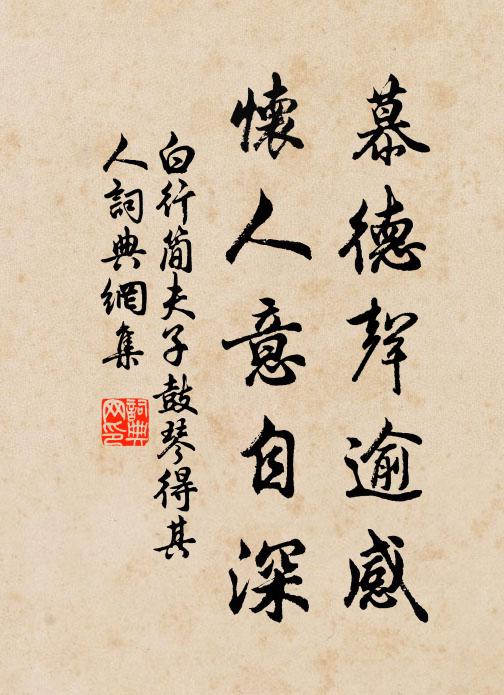 慕德聲逾感
懷人意自深
白行簡夫子鼓琴得其
人詞典網集
詞典网印